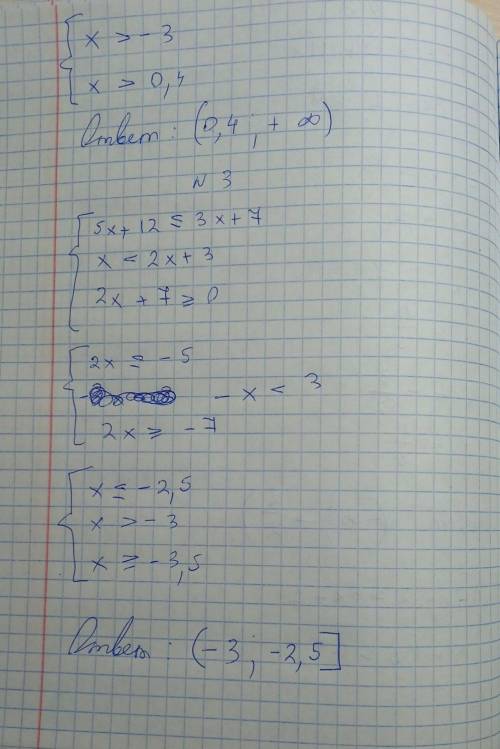 { x > -3
x > 0,4
Ответ: (0,4 ; + ∞)
N 3
{ 5x + 12 ≤ 3x + 7
x < 2x + 3
2x + 7 ≥ 0
{ 2x ≤ -5
- x < 3
2x ≥ -7
{ x ≤ -2,5
x > -3
x ≥ -3,5
Ответ: (-3 ; -2,5]